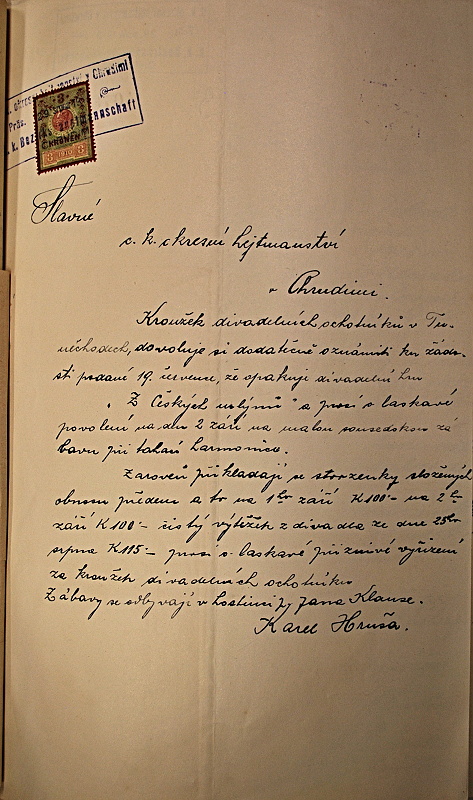 okres. hejtmanství v Chrudimi
Präs.
k. k. Bez hauptmannschaft
Slavné
c. k. okresní hejtmanství
v Chrudimi.
Kroužek divadelních ochotníků v Tu-
něchodech, dovoluje si dodatečně oznámiti ku žádo-
sti podané 19. července, že opakuje divadelní hru
„Z Českých mlýnů" a prosí o laskavé
povolení na den 2 září na malou sousedskou zá
bavu při tahací harmonice.
Zároveň přikládají se stvrzenky složených
obnosu předem a to na 1ho září K100·- na 2ho
září K100·- čistý výtěžek z divadla ze dne 25ho
srpna K115·- prosí o laskavé příznivé vyřízení
za kroužek divadelních ochotníku
Zábavy se odbývají v hostinci p. Jana Klause.
Karel Hruša.